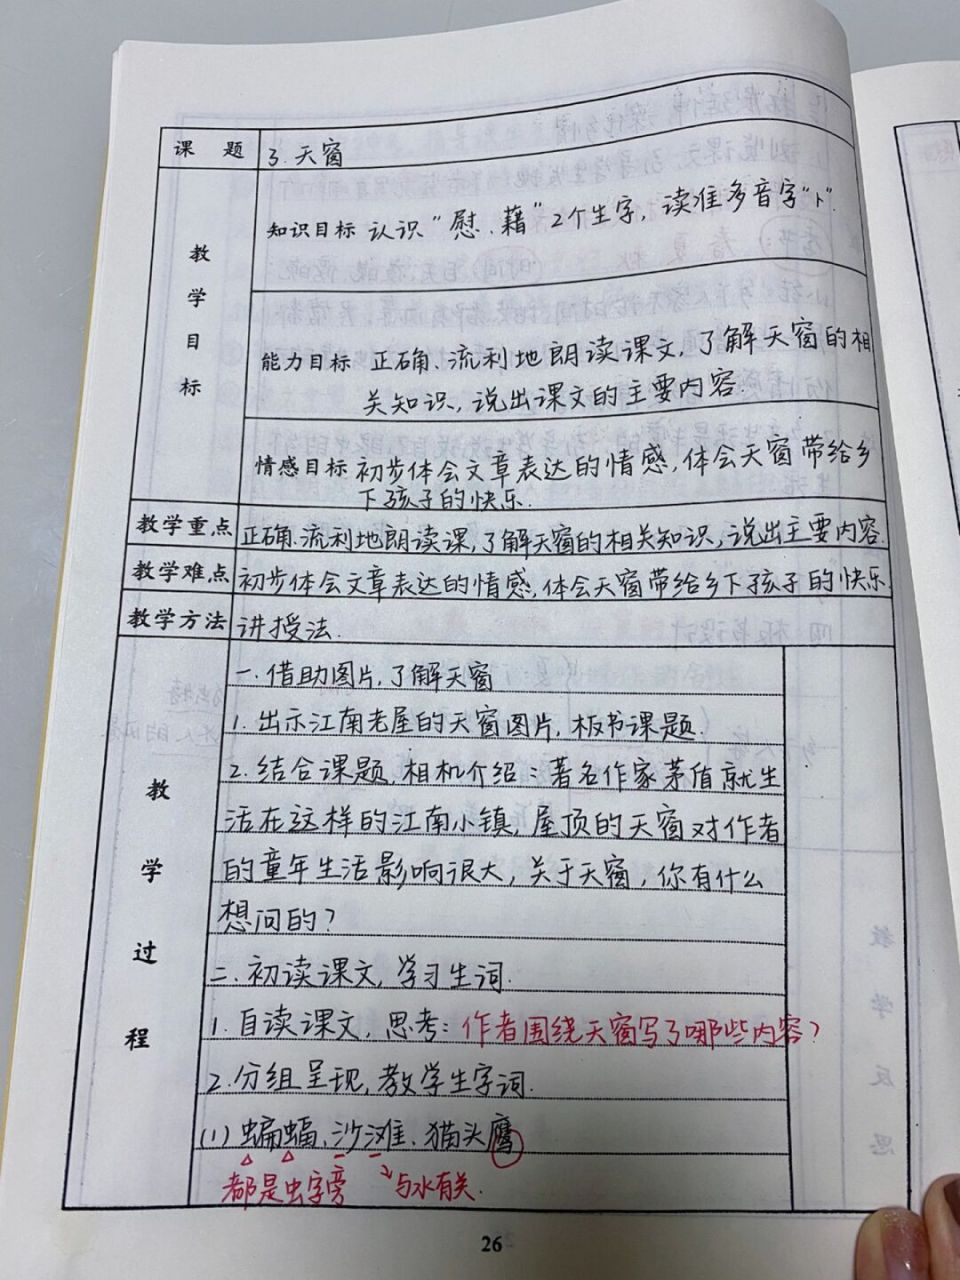 课 题 3.天窗
教学目标
知识目标 认识“慰、藉”2个生字，读准多音字“卜”.
能力目标 正确、流利地朗读课文，了解天窗的相
关知识，说出课文的主要内容.
情感目标 初步体会文章表达的情感，体会天窗带给乡
下孩子的快乐.
教学重点 正确、流利地朗读课，了解天窗的相关知识，说出主要内容.
教学难点 初步体会文章表达的情感，体会天窗带给乡下孩子的快乐.
教学方法 讲授法.
教学过程
一.借助图片，了解天窗
1.出示江南老屋的天窗图片，板书课题.
2.结合课题，相机介绍：著名作家茅盾就生
活在这样的江南小镇，屋顶的天窗对作者
的童年生活影响很大，关于天窗，你有什么
想问的？
二.初读课文，学习生词.
1.自读课文，思考：作者围绕天窗写了哪些内容？
2.分组呈现，教学生字词.
(1)蝙蝠、沙滩、猫头鹰
都是虫字旁 与水有关.
26